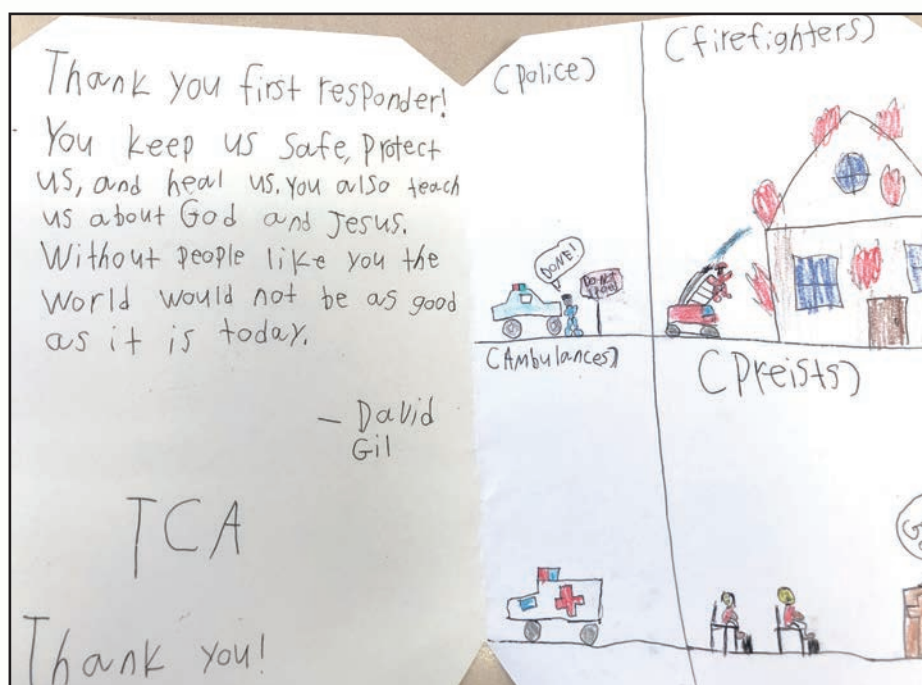 Thank you first responder!
You keep us safe, protect
us, and heal us. you also teach
us about God and Jesus.
Without people like you the
world would not be as good
as it is today.
— David
Gil
TCA
Thank you!
(police)
(firefighters)
DONE!
DO NOT
(Ambulances)
(Preists)